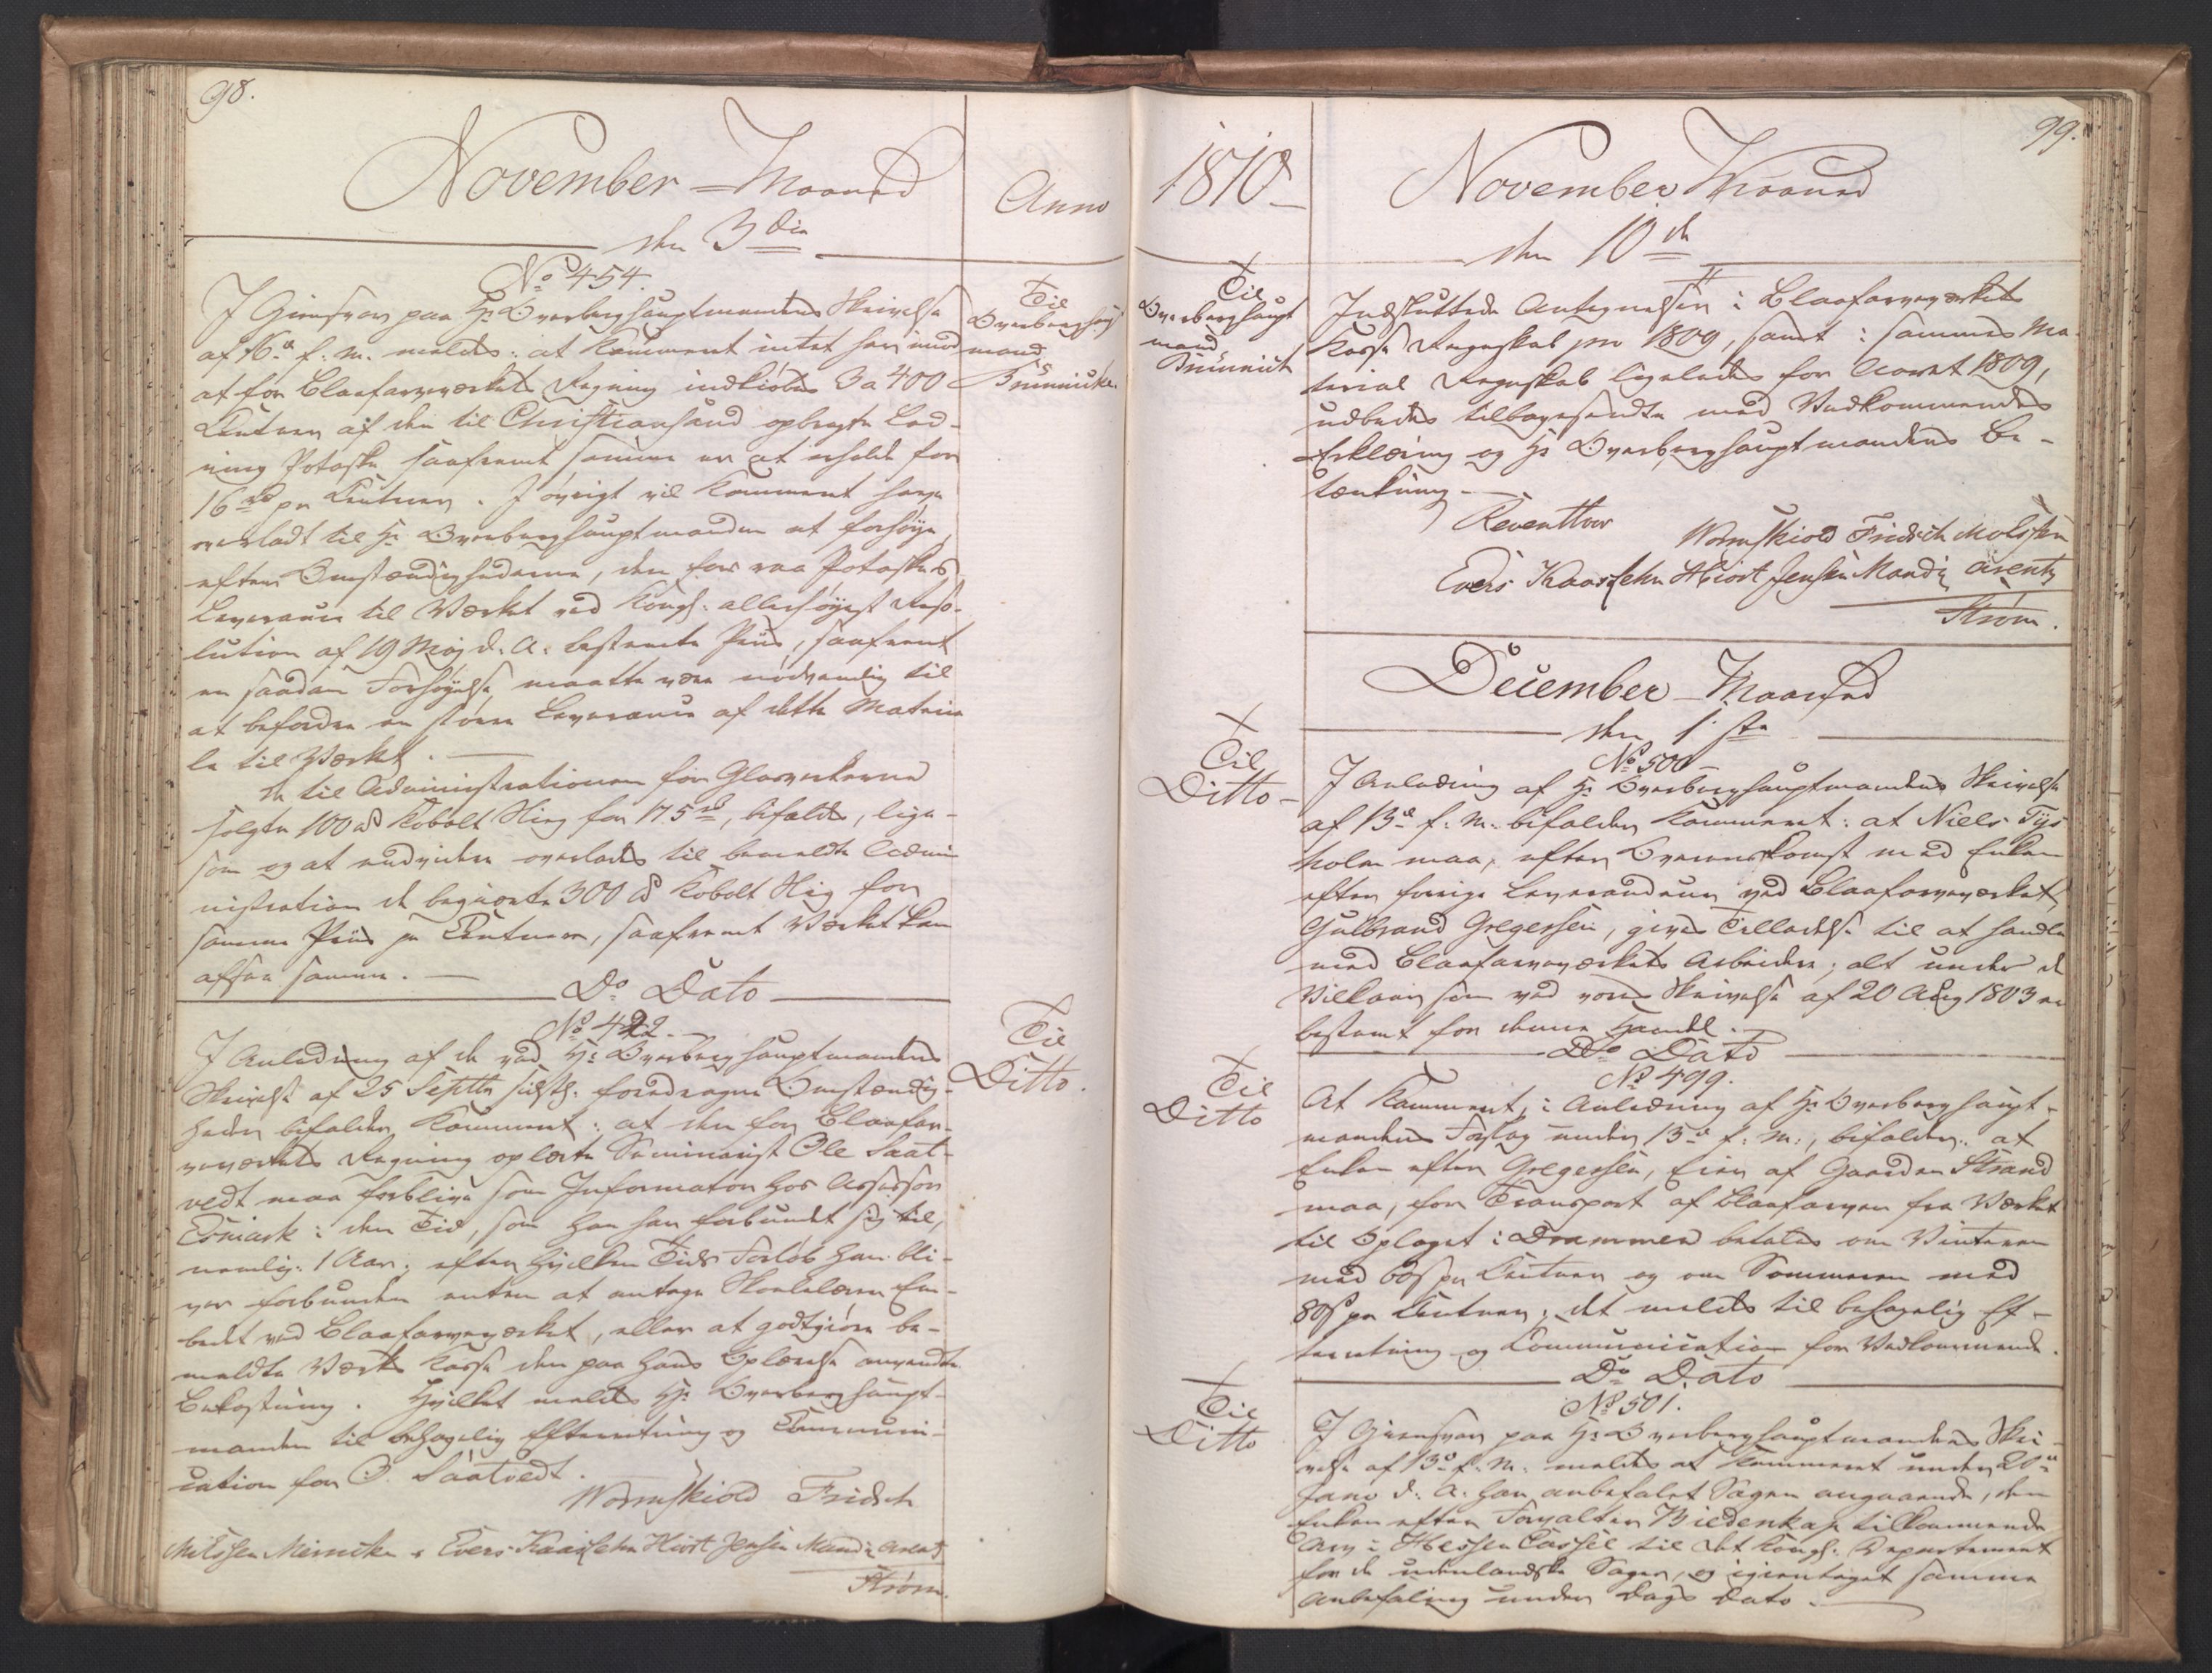 98.
November - Maaned
Anno
den 3die
No 454.
Til
Overberghaupt
mand
Brünnicke.
I Giensvar paa Hr Overberghauptmandens Skrivelse
af 16de f: M. meldes: at Kammeret intet har imod
at for Blaafarveverkets Regning indkiøbes 3 a 400
Centner af den til Christiansand opbragte Lad-
ning Potaske saafremt samme er at erholde for
16 rd pr Centner. I øvrigt vil Kammeret have
overladt til Hr Overberghauptmanden at forhøye
efter Omstændighederne, den for raa Potaskes
Leverance til Værket ved Kongl: allerhøyest Reso-
lution af 19 May d: A: bestemte Priis, saafremt
en saadan Forhøyelse maatte være nødvendig til
at befordre en større Leverance af dette Materia
le til Værket.
De til Administrationen for Glasverkerne
solgte 100 ℔ Kobolt Slieg for 175 rd, bifaldes, lige-
som og at endvidere overlades til bemeldte Admi
nistration de begiærte 300 ℔ Kobolt Slig for
samme Priis pr Centner, saafremt Værket kan
afsee samme.
Do Dato
No 422.
Til
Ditto.
I Anledning af de ved Hr: Overberghauptmandens
Skrivelse af 25 Septbr sidstl: foredragne Omstændig-
heder bifalder Kammeret: at den for Blaafar-
veværkets Regning oplærte Seminarist Ole Saat-
vedt maa forblive som Informator hos Assessor
Esmark i den Tid, som han har forbundet sig til,
nemlig: 1 Aar; efter hvilken Tids Forløb han bli-
ver forbunden enten at antage Skolelærer Em-
bedet ved Blaafarveværket, eller at godtgiøre be-
meldte Værks Kasse den paa hans Oplærelse anvendte
Bekostning. Hvilket meldes Hr: Overberghaupt-
manden til behagelig Efterretning og Communi-
cation for O. Saatvedt.
Wormskiold Fridsch
Miössen Meincke Evers Kaas Lehn Hiort Jensen Mandix Arentz
Strøm.
1810
November Maaned
99.
den 10de
Til
Overberghaupt
mand
Brünnich
Indsluttede Antegnelser i Blaafarveværkets
Kasse Regnskab pro 1809, samt i sammes Ma-
terial Regnskab ligeledes for Aaret 1809,
udbedes tilbagesendte med Vedkommendes
Erklæring og Hr Overberghauptmandens Be-
tænkning.
Reventlow
Wormskiold Fridsch Molssen
Evers Kaas Lehn Hiort Jensen Mandix Arentz
Strøm.
December - Maaned
den 1ste
No 500
Til
Ditto
I Anledning af Hr Overberghauptmandens Skrivelse
af 13de f: M: bifalder Kammeret: at Niels Tys
holm maa, efter Overenskomst med Enken
efter forrige Leverandeur ved Blaafarveværket
Gulbrand Gregersen, gives Tilladelse til at handle
med Blaafarveværkets Arbeidere, alt under de
Vilkaar som ved vores Skrivelse af 20 Aug 1803 er
bestemt for denne Handel.
Do Dato
No 499.
Til
Ditto
At Kammeret, i Anledning af Hr Overberghaupt-
mandens Forslag under 13de f: M:, bifalder: at
Enken efter Gregersen, Eier af Gaarden Strand
maa, for Transport af Blaafarven fra Værket
til Oplaget i Drammen betales om Vinteren
med 60 s pr Centner og om Sommeren med
80 s pr Centner; det meldes til behagelig Ef-
terretning og Communication for Vedkommende.
Do Dato
No 501.
Til
Ditto
I Giensvar paa Hr: Overberghauptmandens Skri-
velse af 13de f: M: meldes at Kammeret under 20de
Janv d: A: har anbefalet Sagen angaaende, den
Enken efter Forvalter Biedenkap tilkommende
Arv i Hessen Cassel til det Kongl: Departement
for de udenlandske Sager, og igientaget samme
Anbefaling under Dags Dato.